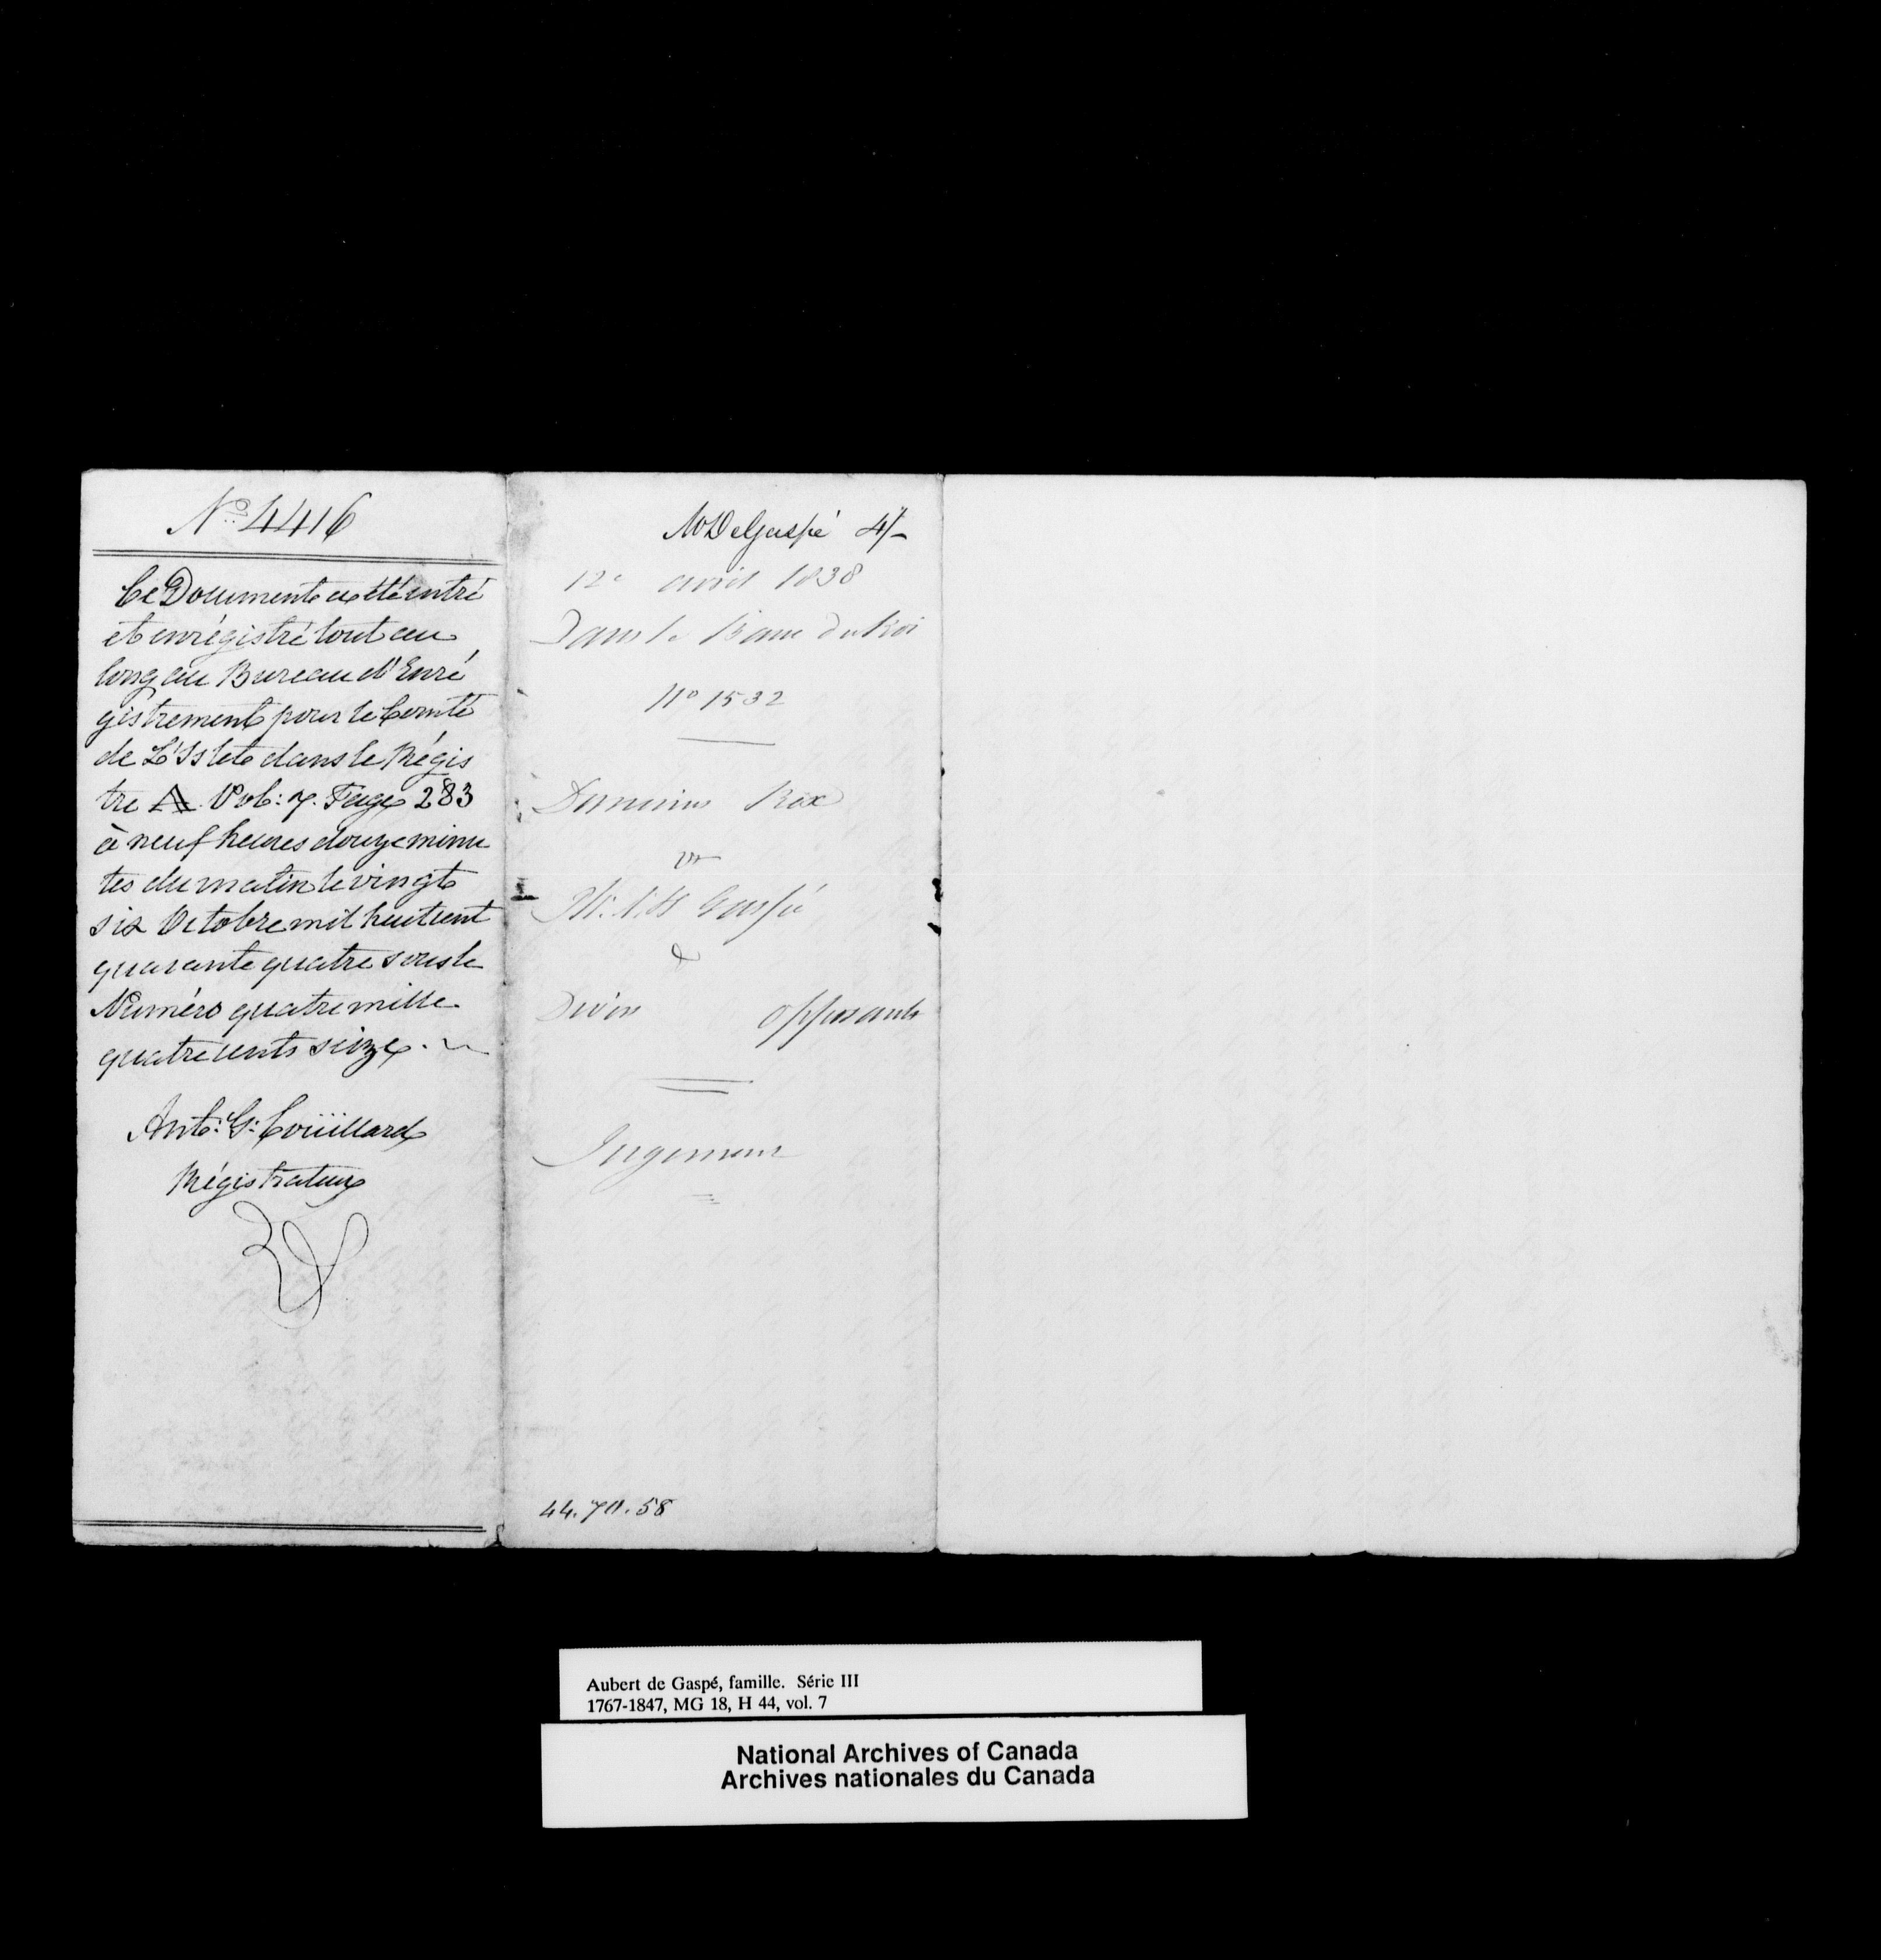 No. 4416
Ce Document a été entré
et enrégistré tout au
long au Bureau d'Enré
gistrement pour le Comté
de L'Islet dans le Régis
tre A. Vol: 7. Page 283
à neuf heures douze minu
tes du matin le vingt
six Octobre mil huit cent
quarante quatre sous le
Numéro quatre mille
quatre cents seize.
Ant: G: Coüillard
Régistrateur
Mr DeGaspé 4/-
12e avril 1838
Dans le Banc du Roi
No 1532
Dominus Rex
vs
Gaspé
&
Divers opposants
Jugement
44.70.58
Aubert de Gaspé, famille. Série III
1767-1847, MG 18, H 44, vol. 7
National Archives of Canada
Archives nationales du Canada